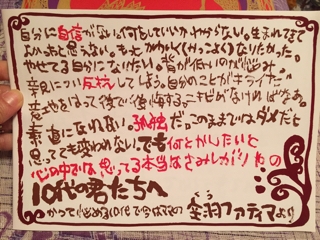 自分に自信がない。何をしていいかわからない。生まれてきて
よかったと思えない。もっとかわいく(かっこよく)なりたかった。
やせてる自分になりたい。背が低いのが悩み。
親にいつも反抗してしまう。自分のことがキライだ。
意地をはって後で後悔する。ニキビがなければなぁ。
素直になれない。孤独だ。このままではダメだと
思っても変われない。でも何とかしたいと
心の中では思ってる本当はさみしがりやの
10代の君たちへ
かつて悩める10代で今はママの 空羽ファティマより
くう